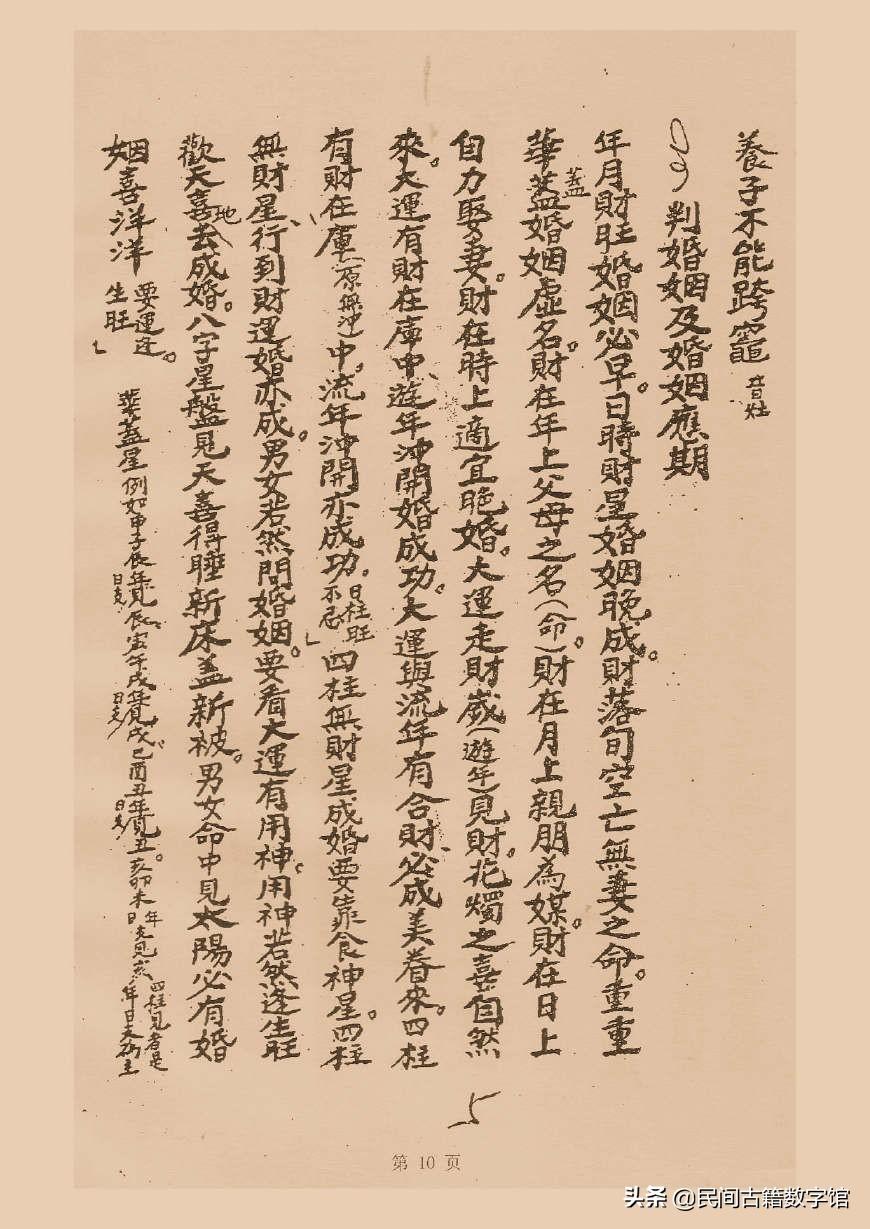 養子不能跨竈 音灶
判婚姻及婚姻應期
年月財旺婚姻必早。日時財星婚姻晚成。財落旬空亡無妻之命。重重
華蓋婚姻虛名。財在年上父母之名(命)。財在月上親朋為媒。財在日上
蓋
自力娶妻。財在時上適宜晚婚。大運走財歲(遊年)見財。花燭之喜自然
來。大運有財在庫中、遊年沖開婚成功。大運與流年有合財、必成美眷來。四柱
有財在庫(原無沖)中、流年沖開亦成功。日柱旺不忌 四柱無財星成婚要靠食神星。四柱
無財星、行到財運婚亦成。男女若然問婚姻。要看大運有用神。用神若然逢生旺
歡天喜地去成婚。八字星盤見天喜得睡新床盖新被。男女命中見太陽必有婚
姻喜洋洋 要運逢生旺。
華蓋星 例如申子辰年見辰。寅午戌年見戌 巳酉丑年見丑。亥卯未
日支
日支
日支
四柱見者是
5
第 10 页
头条 @民间古籍数字馆